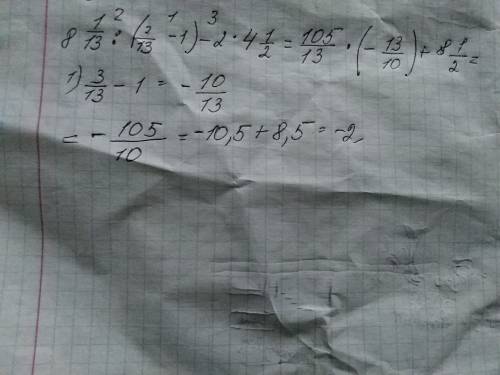 8 1/13 : (3/13 - 1) - 2 · 4 1/2 = 105/13 · (- 13/10) + 8 1/2 =
1) 3/13 - 1 = - 10/13
= - 105/10 = -10,5 + 8,5 = -2,